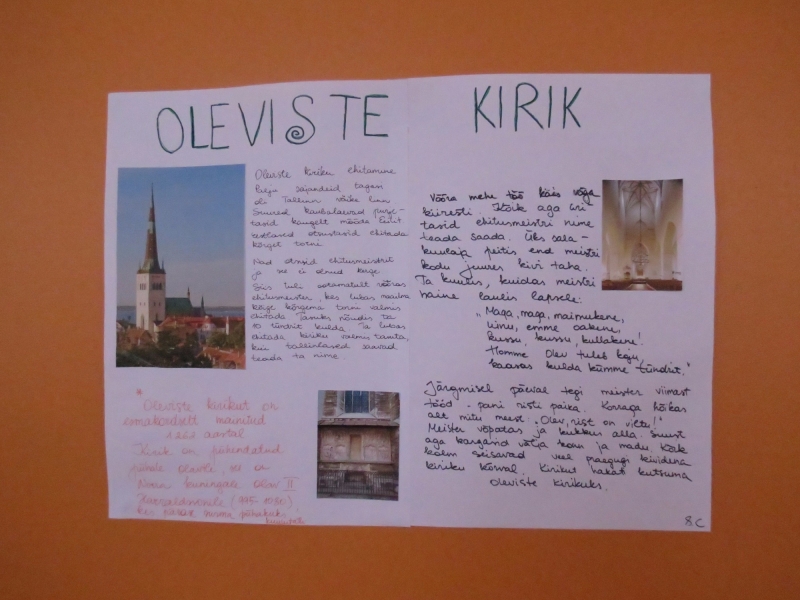 OLEVISTE KIRIK
Oleviste kiriku ehitamine
Palju sajandeid tagasi
oli Tallinn väike linn
Suured kaubalaevad purje-
tasid kaugelt mööda Eestit
eestlased otsustasid ehitada
kõrget torni
Nad otsisid ehitusmeistrit
ja see ei olnud kerge
Siis tuli ootamatult võõras
ehitusmeister, kes lubas maailma
kõige kõrgema torni valmis
ehitada Tasuks nõudis ta
10 tündrit kulda, Ta lubas
ehitada kiriku valmis tasuta,
kui tallinlased saavad
teada ta nime.
*
Oleviste kirikut on
esmakordselt mainitud
aastal
Kirik on pühendatud
pühale Olavile, see on
Norra kuningale Olav II
Haraldssonile
Võõra mehe töö käis väga
kiiresti Kõik aga üri
tasid ehitusmeistri nime
teada saada. Üks sala-
kuulaja peitis end meistri
kodu juures kivi taha.
Ta kuulis, kuidas meistri
naine laulis lapsele:
„Maga, maga, maimukene,
uinu, emme oakene,
kussu, kussu, kullakene!
Homme Olev tuleb koju,
kaasas kulda kümme tündrit."
Järgmisel päeval tegi meister viimast
tööd - pani risti paika. Korraga hõikas
alt mitu meest: „Olev, rist on viltu!"
Meister võpatas ja kukkus alla. Suust
aga kargasid välja konn ja madu. Kõik
kolm seisavad veel praegugi kividena
kiriku kõrval. Kirikut hakati kutsuma
Oleviste kirikuks.
8.C